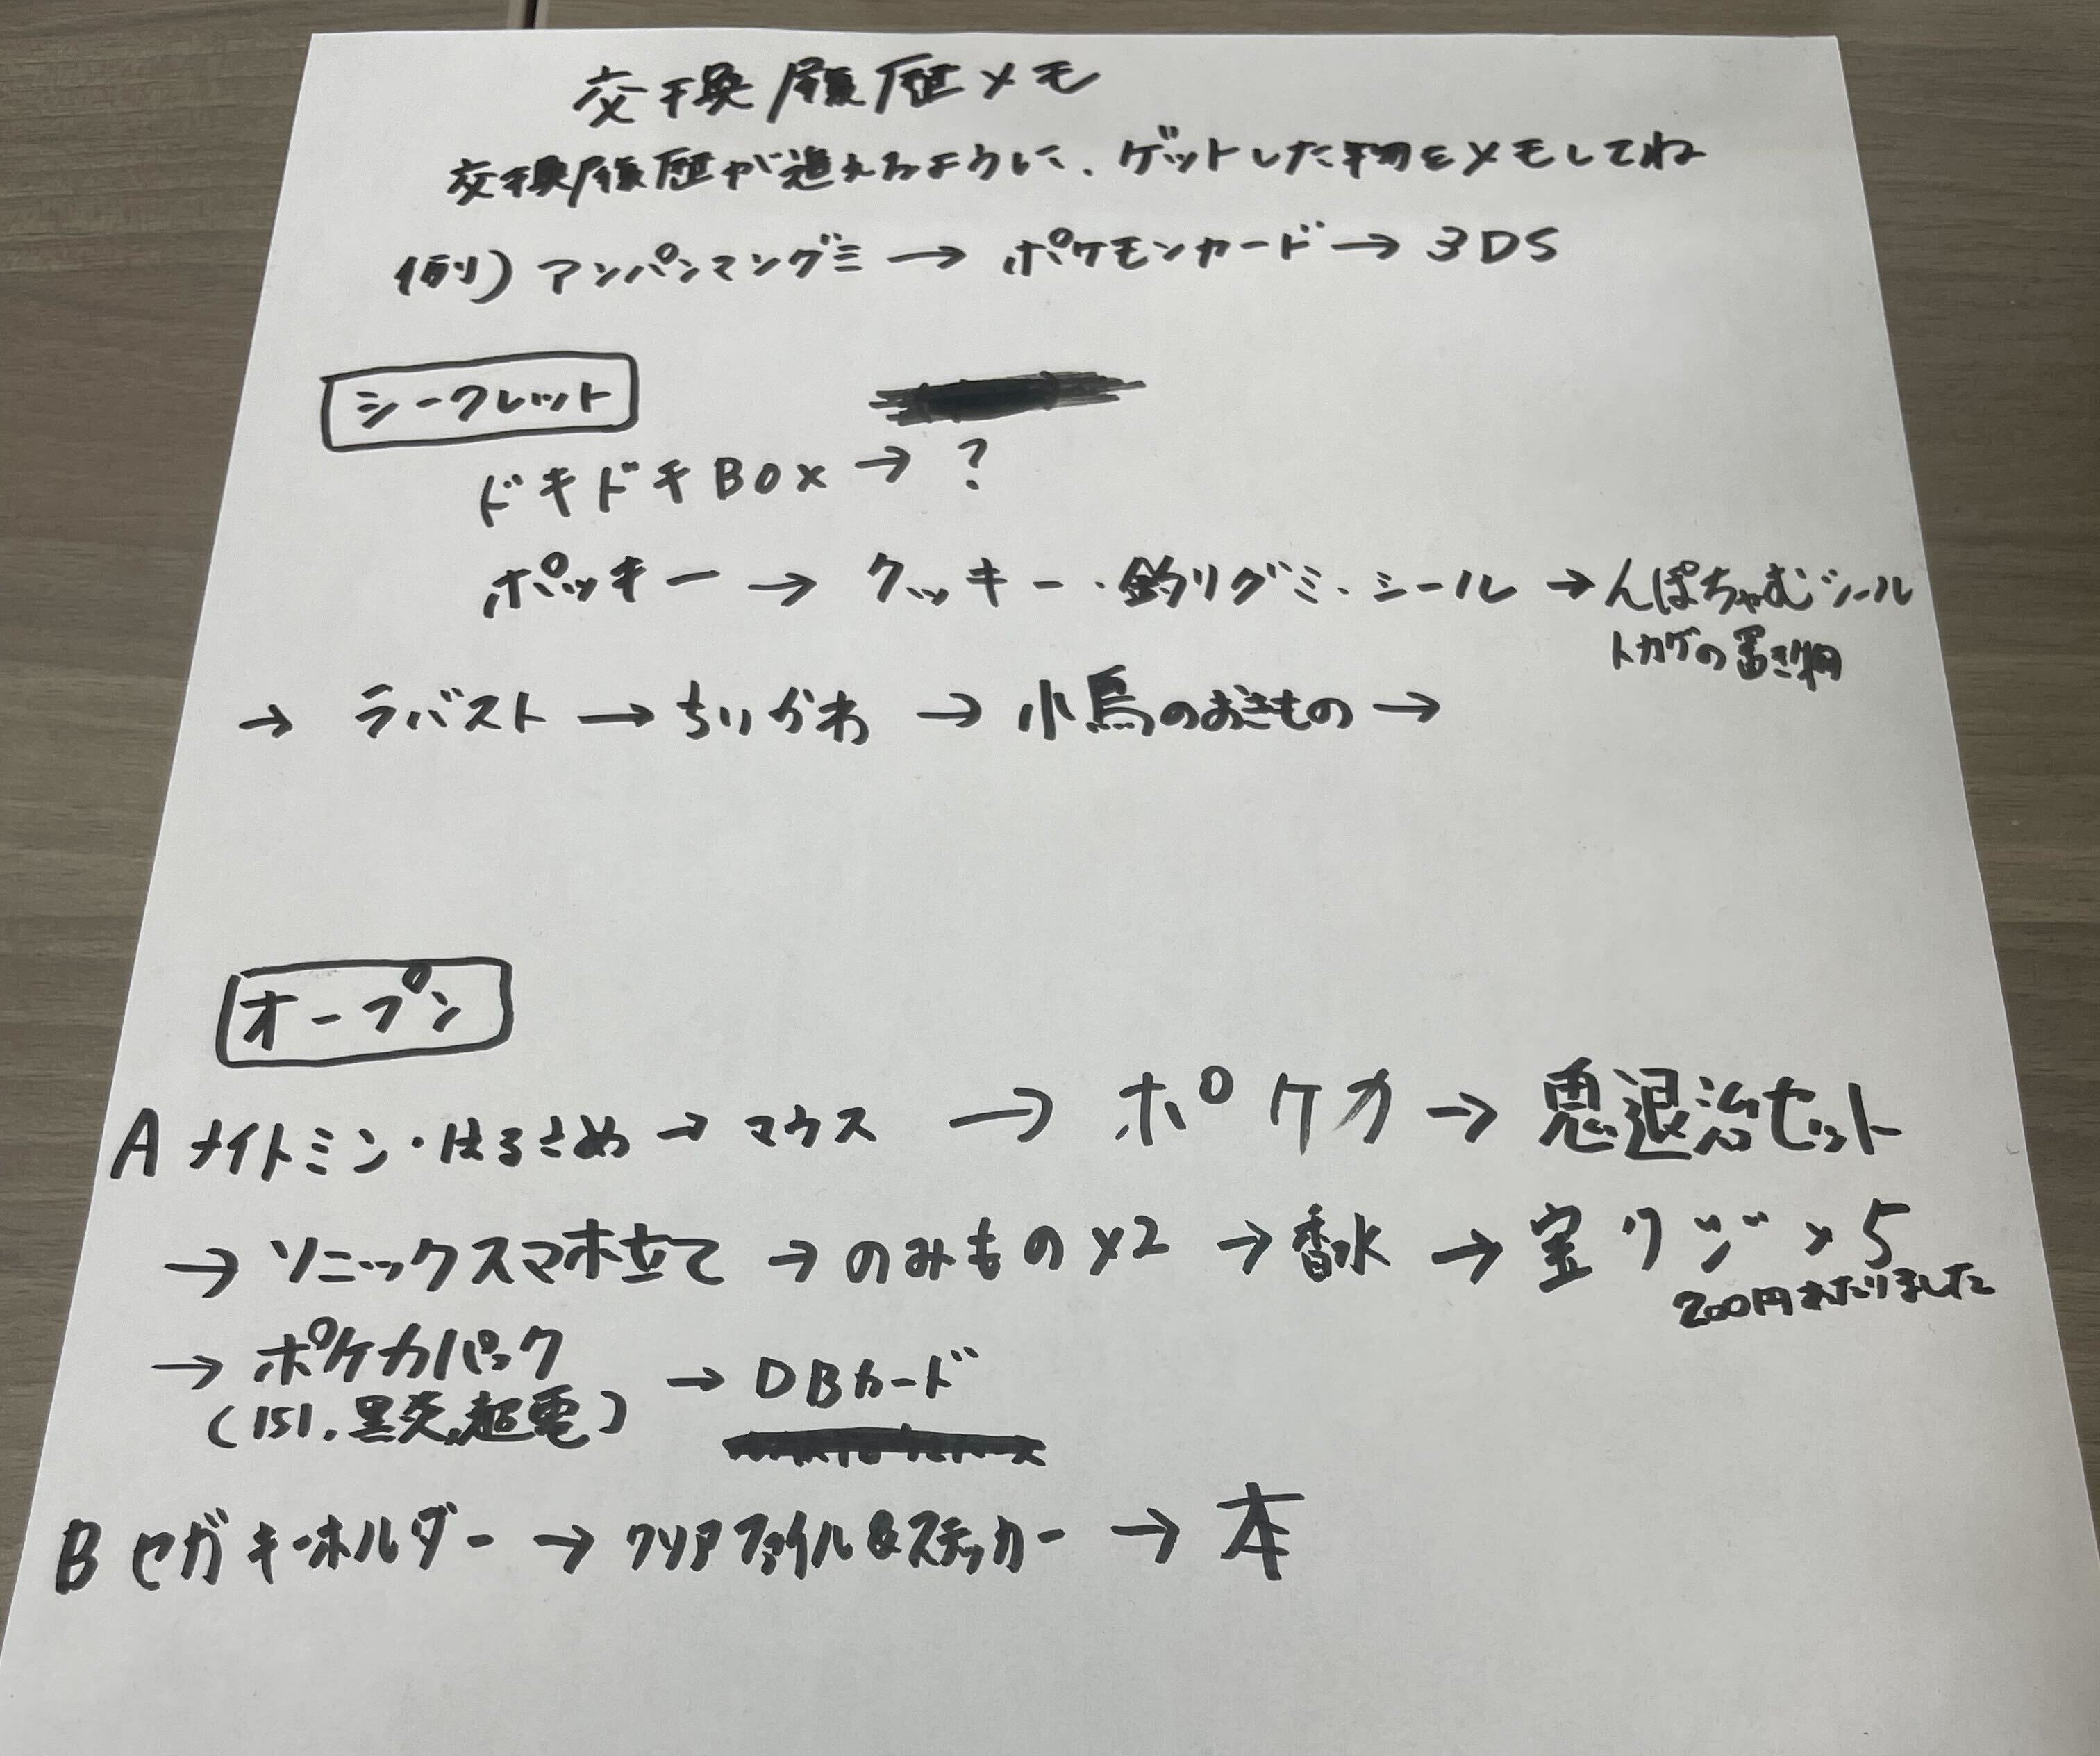 交換履歴メモ
交換履歴が追えるように、ゲットした物をメモしてね
(例)アンパンマングミ→ポケモンカード→3DS
シークレット
ドキドキBOX→?
ポッキー→クッキー・釣りグミ・シール→んぽちゃむシール
トカゲの置き物
→ラバスト→ちいかわ→小鳥のおきもの→
オープン
Aナイトミン・はるさめ→マウス→ポケカ→鬼退治セット
→ソニックスマホ立て→のみもの×2→香水→宝クジ×5
200円あたりました
→ポケカパック→DBカード
(151.黒炎.超電)
Bセガキーホルダー→クリアファイル&ステッカー→本